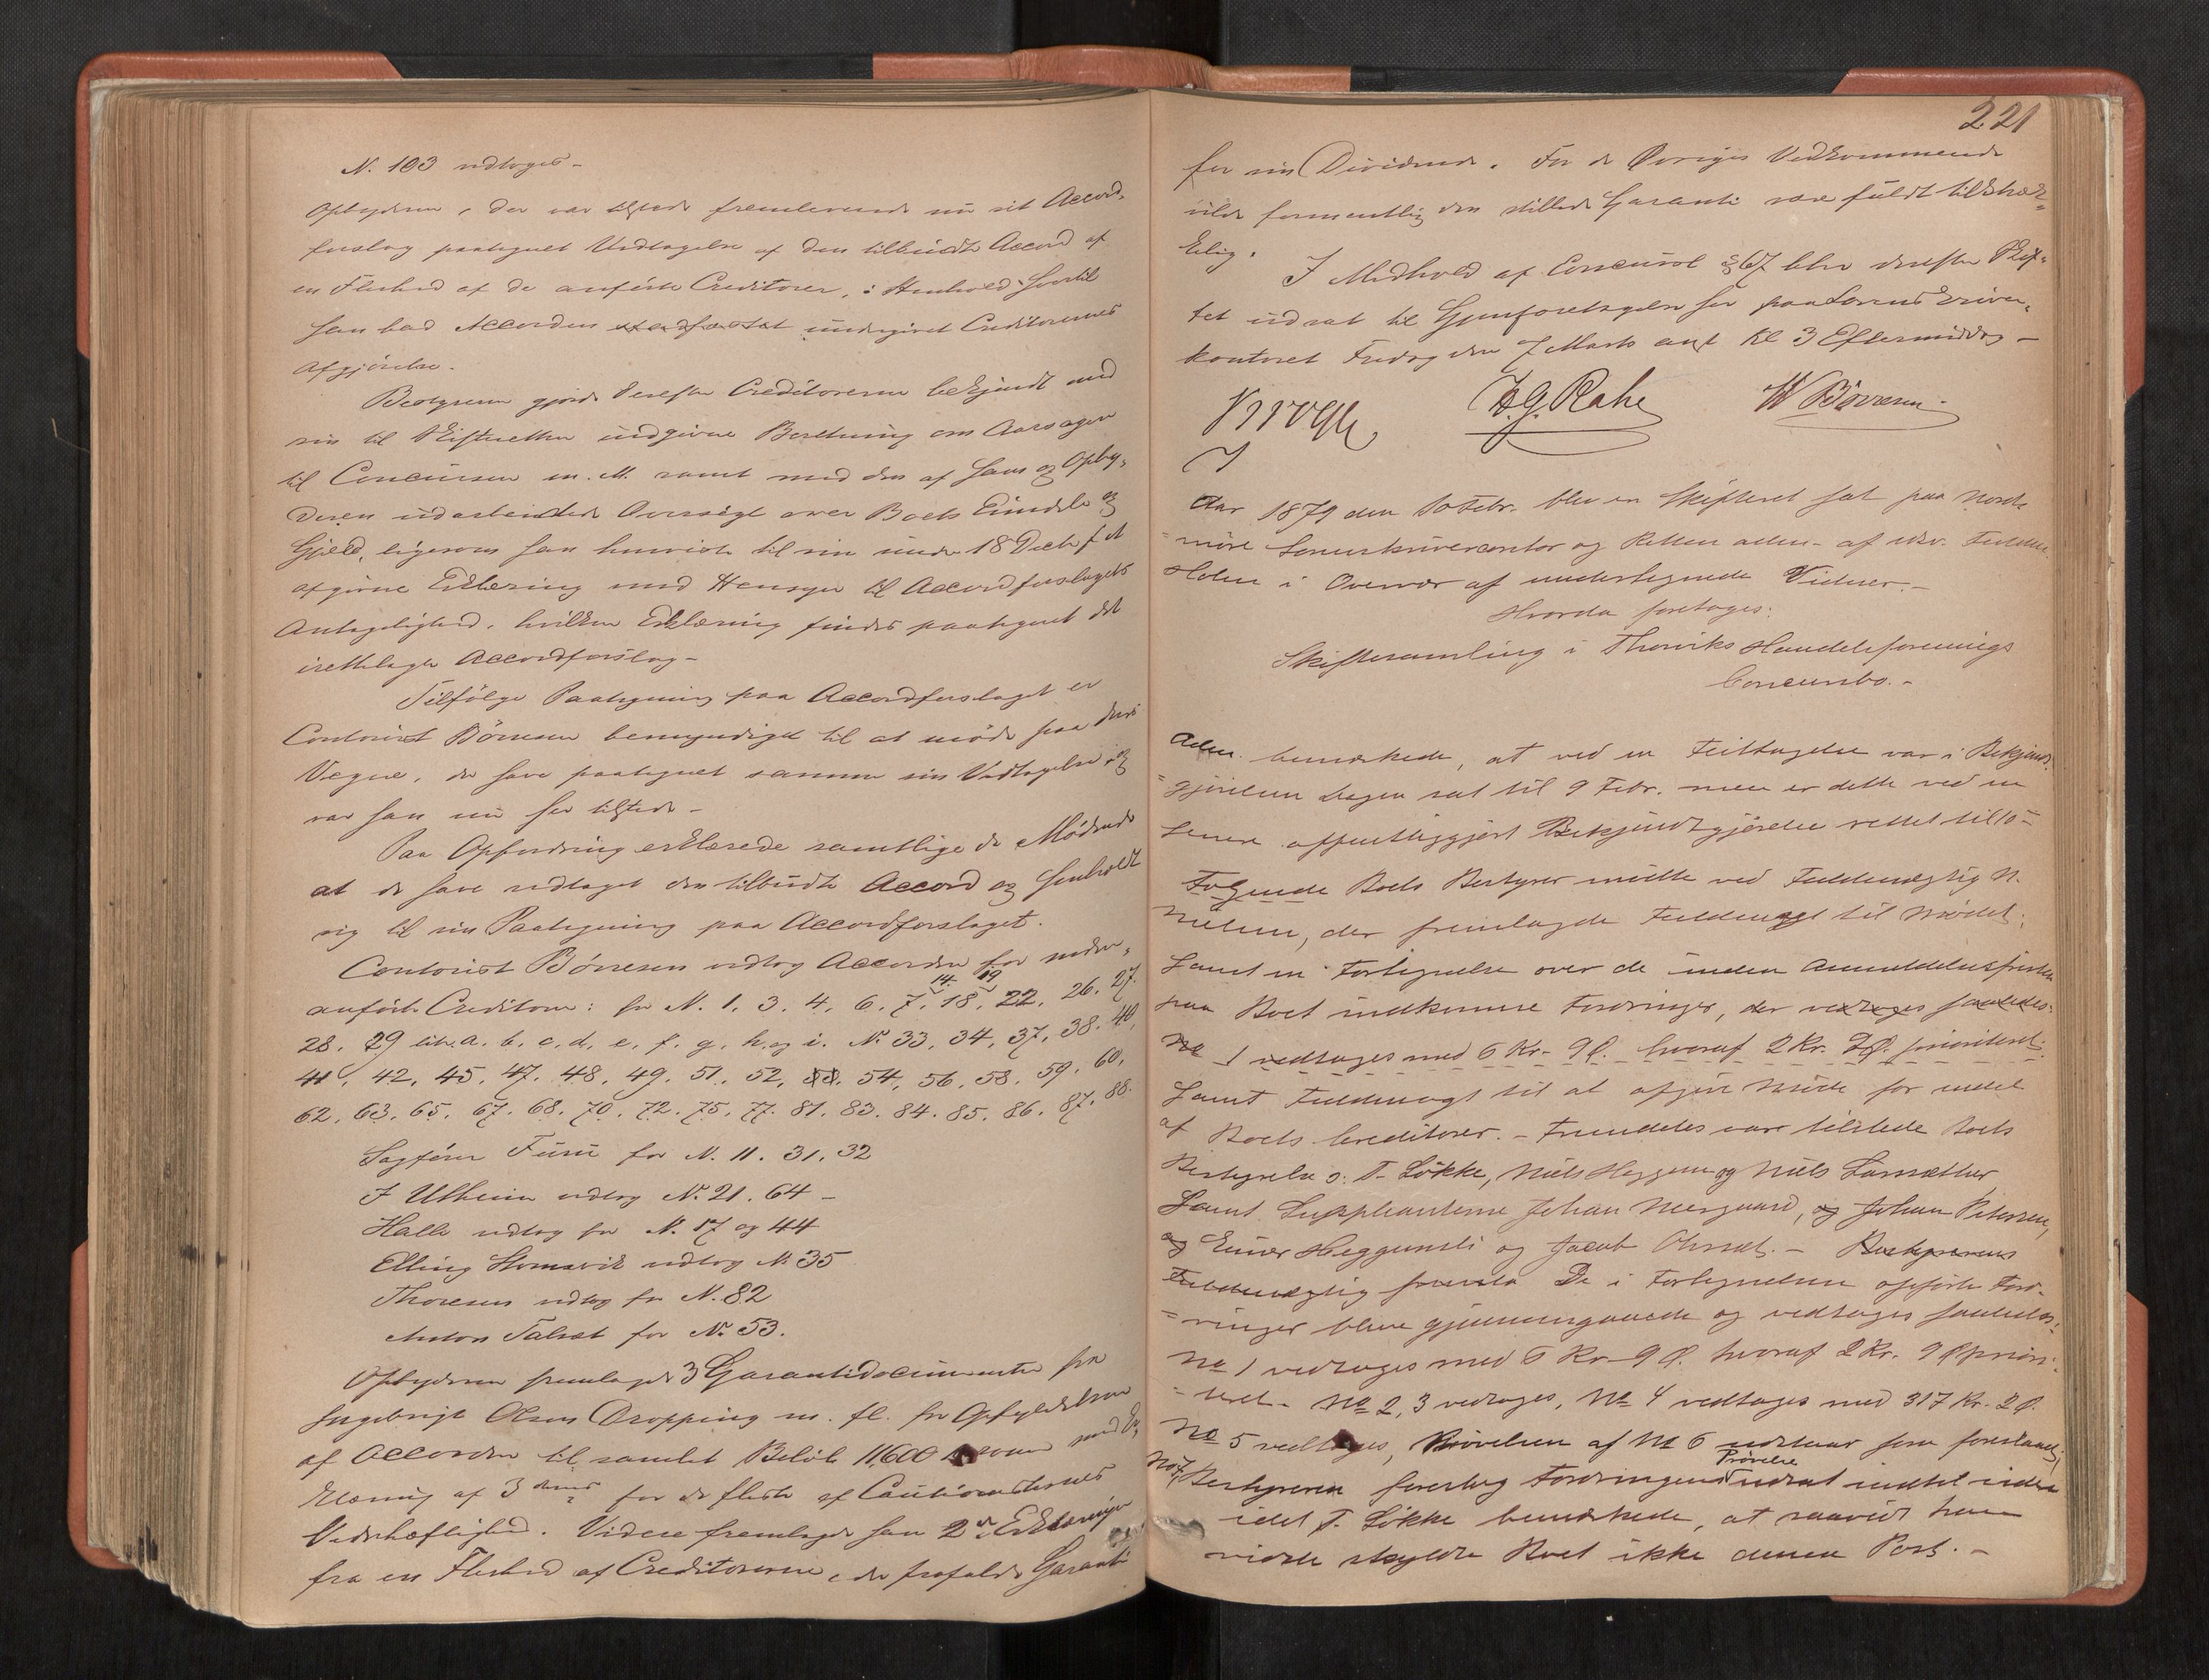 N. 103 vedtoges -
Opbyderen, der var tilstede fremleverede nu sit Accord-
forslag paategnet Vedtagelse af den tilbudte Accord af
en Flerhed af de anførte Creditorer, i Henhold hvortil
han bad Accorden stadfæstet undergivet Creditorernes
Afgjørelse.
Bestyreren gjorde derefter Creditorerne bekjendt med
sin til Skifteretten indgivne Beretning om Aarsagen
til Concursen m. M. samt med den af ham og Opby-
deren udarbeidede Oversigt over Boets Eiendele og
Gjæld, ligesom han henviste til sin under 18 Decbr f A
afgivne Erklæring med Hensyn til Accordforslagets
Antagelighed, hvilken Erklæring findes paategnet det
irettelagte Accordforslag -
Tilfølge Paategning paa Accordforslaget er
Contorist Børresen bemyndiget til at møde paa deres
Vegne, der have paategnet samme sin Vedtagelse og
var han nu her tilstede -
Paa Opfordring erklærede samtlige de Mødende
at de have vedtaget den tilbudte Accord og henholdt
sig til sin Paategning paa Accordforslaget.
Contorist Børresen vedtog Accorden for neden-
anførte Creditorer: for N. 1, 3, 4, 6, 7, 14. 18, 19 22, 26. 27.
28. 29 litr. a. b. c. d. e. f. g. h. og i. Nr 33, 34, 37, 38. 40,
41, 42, 45, 47. 48, 49. 51. 52, 53. 54, 56, 58. 59. 60.
62. 63. 65. 67. 68. 70. 72. 75. 77. 81. 83. 84. 85. 86. 87. 88.
Sagfører for N. 11. 31. 32
J Utheim vedtog Nr. 21. 64 -
Halle vedtog for N. 17 og 44
Elling vedtog Nr 35
Thoresen vedtog for N. 82
Anton Talset for Nr. 53.
Opbyderen fremlagde 3 Garantidocumenter fra
Ingebrigt Olsen Dropping m. fl. for Opfyldelsen
af Accorden til samlet Beløb 11600 Kroner med Er-
klæring af 3 for de fleste af Cautionisternes
Vederhæftighed. Videre fremlagde han 2de Erklæringer
fra en Flerhed af Creditorerne, der frafalde Garanti
221
for sin Dividende. For de Øvriges Vedkommende
vilde formentlig den stillede Garanti være fuldt tilstræk-
kelig.
I Medhold af Concursl § 67 blev derefter Skif-
tet udsat til Gjenforetagelse her paa Sorenskriver-
kontoret Fredag den 7 Marts anst Kl 3 Eftermiddag -
Krogh H.G. Rahe W Børresen
Aar 1879 den 10 Febr. blev en Skifteret sat paa Nord-
møre Sorenskrivercontor og Retten adm. af edsv. Fuldm.
Holm i Overvær af undertegnede Vidner. -
Hvorda foretoges:
Skiftesamling i Thorviks Handelsforenings
Concursbo. -
Adm. bemærkede, at ved en Feiltagelse var i Bekjendt-
gjørelsen dagen sat til 9 Febr. men er dette ved en
senere offentliggjort Bekjendtgjørelse rettet til 10 -
Følgende Boets Bestyrer mødte ved Fuldmægtig N.
Nielsen, der fremlagde Fuldmagt til Mødet,
samt en Fortegnelse over de inden Anmeldelsesfristen
paa Boet indkomne Fordringer, der vedtoges saaledes:
No 1 vedtages med 6 Kr. 9 Ø. hvoraf 2 Kr. 9 Ø. prioriteret.
samt Fuldmagt til at afgive Møde for endel
af Boets Creditorer. - Fremdeles var tilstede Boets
Bestyrelse o: T. Løkke, Niels Heggem og Niels
samt Suppleanterne Johan Mergaard, og Johan Petersen,
og Einar Heggemsli og Jacob - Bestyrerens
Fuldmægtig De i Fortegnelsen opførte Ford-
ringer bleve gjennemgaaede og vedtoges saaledes:
No 1 vedtages med 6 Kr 9 Ø. hvoraf 2 Kr. 9 Ø priori-
teret. No 2, 3 vedtoges, No 4 vedtages med 317 Kr. 2 Ø.
No 5 vedtoges, Prøvelsen af No 6 udstaar som foreslaaet,
No 7, Bestyreren foreslog Fordringens Prøvelse udsat indtil videre
idet T. Løkke bemærkede, at saavidt han
vidste skyldte Boet ikke denne Post. -